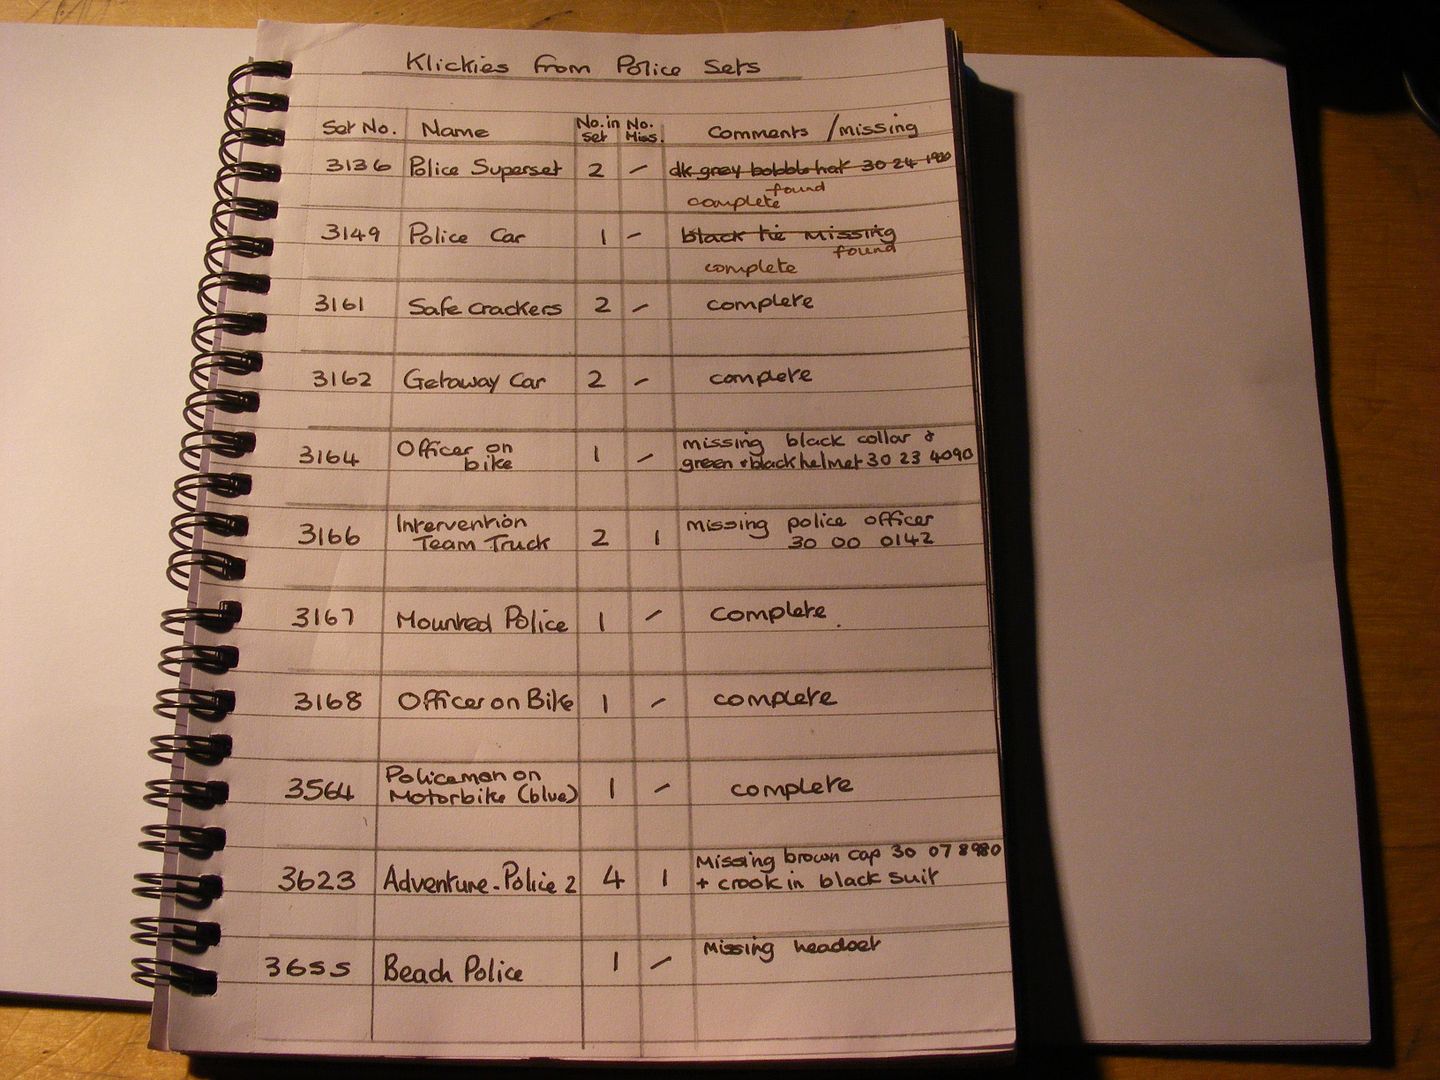 Klickies from Police Sets
Set No. Name No. in set No. Miss. Comments / missing
3136 Police Superset 2 – dk grey bobble hat 30 24 1920
found
complete
3149 Police Car 1 – black tie missing
found
complete
3161 Safe crackers 2 – complete
3162 Getaway Car 2 – complete
3164 Officer on bike 1 – missing black collar &
green + black helmet 30 23 4090
3166 Intervention Team Truck 2 1 missing police officer
30 00 0142
3167 Mounted Police 1 – complete.
3168 Officer on Bike 1 – complete
3564 Policeman on Motorbike (blue) 1 – complete
3623 Adventure - Police 2 4 1 Missing brown cap 30 07 8980
+ crook in black suit
3655 Beach Police 1 – Missing headset